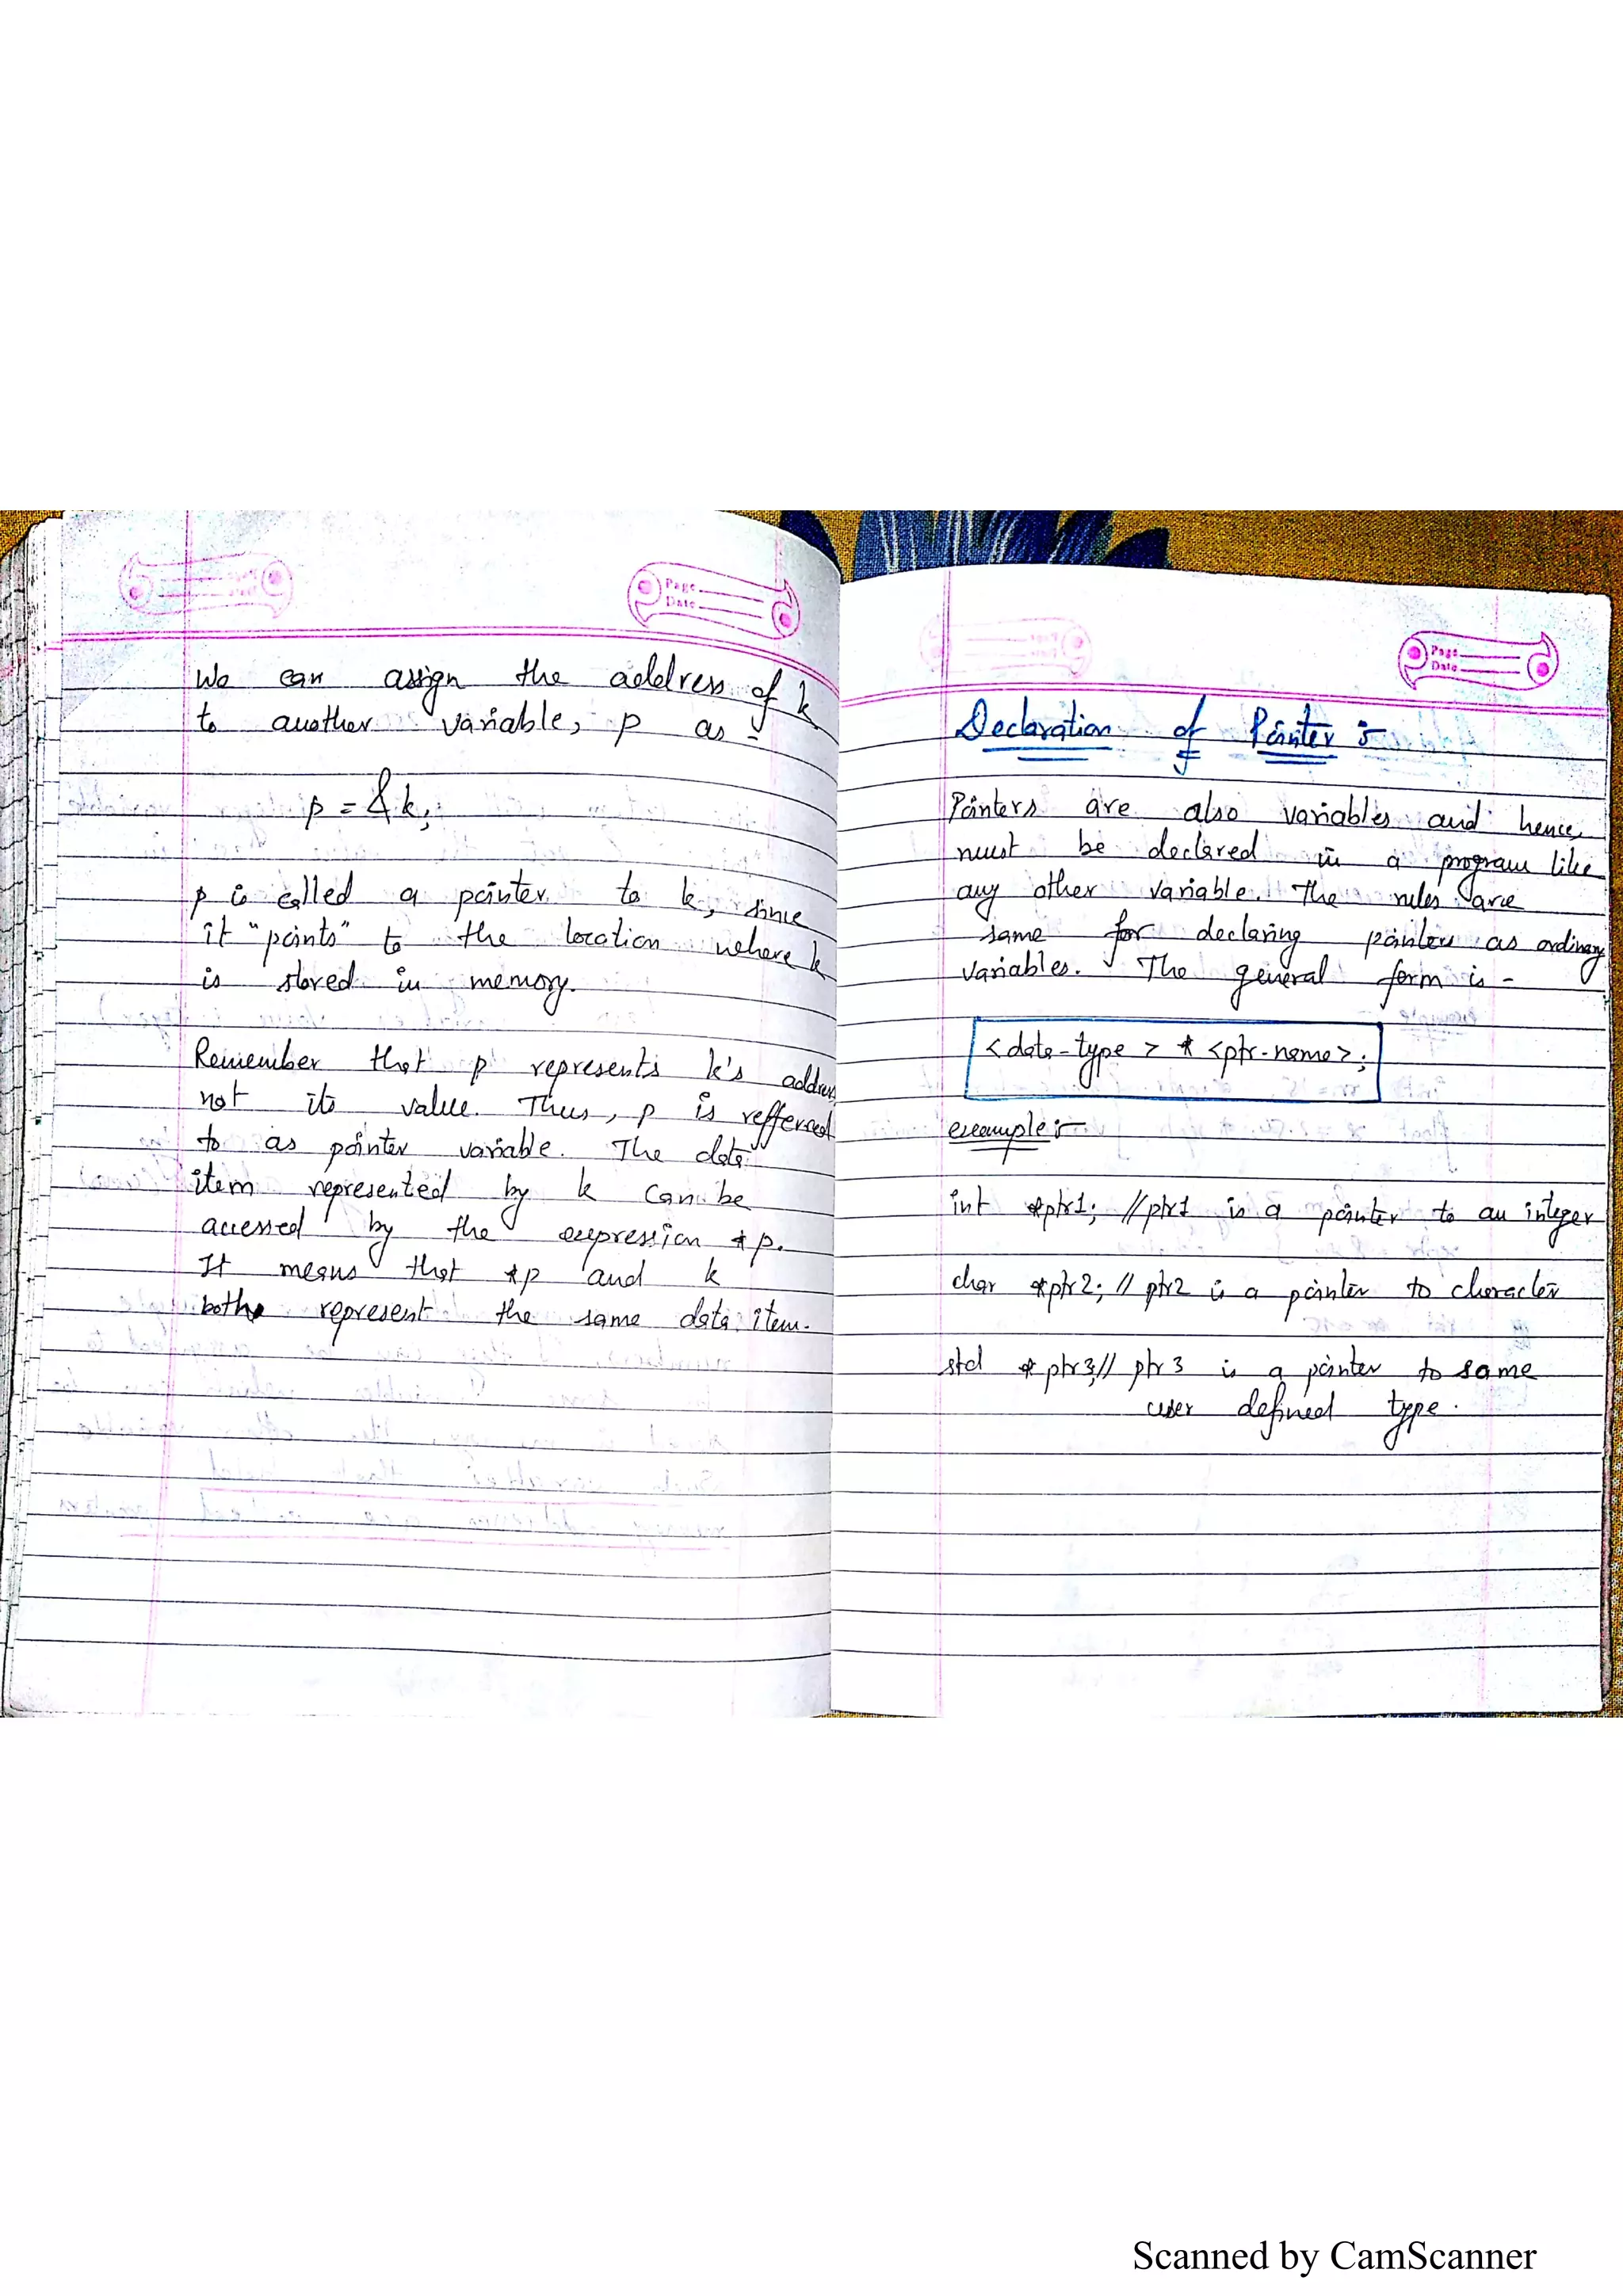 Page
Date
We can assign the address of k
to another variable, p as -
p = &k;
p is called a pointer to k, since
it "points" to the location where k
is stored in memory.
Remember that p represents k's address
not its value. Thus, p is reffered
to as pointer variable. The data
item represented by k can be
accessed by the expression *p.
It means that *p and k
both represent the same data item.
Page
Date
Declaration of Pointer :-
Pointers are also variables and hence,
must be declared in a program like
any other variable. The rules are
same for declaring pointers as ordinary
variables. The general form is -
<data-type> * <ptr-name>;
example :-
int *ptr1; //ptr1 is a pointer to an integer
char *ptr2; // ptr2 is a pointer to character
std *ptr3;// ptr3 is a pointer to same
user defined type.
Scanned by CamScanner